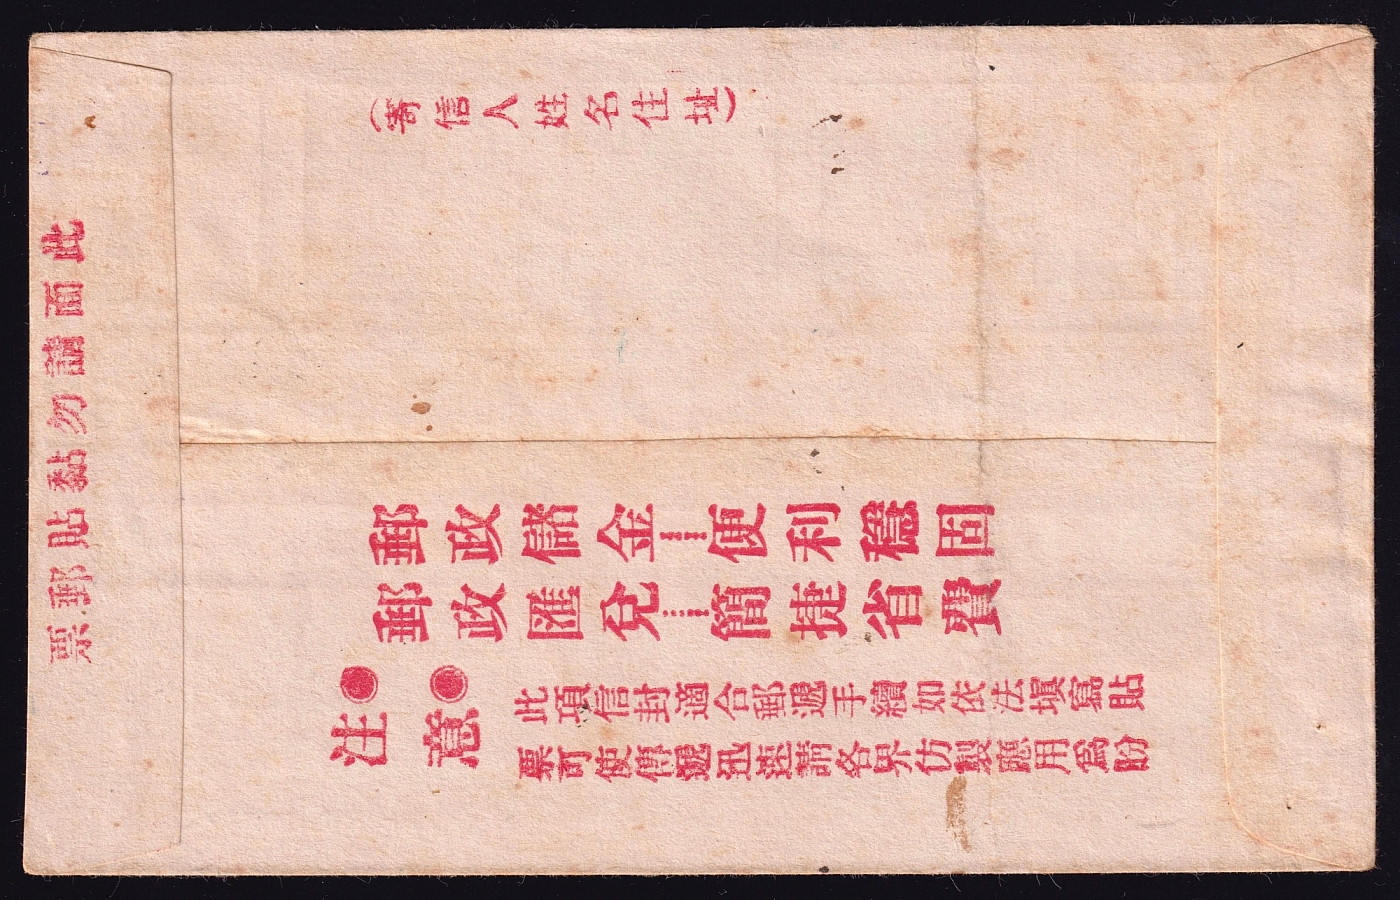 (寄信人姓名住址)
此面請勿黏貼郵票
郵政儲金……便利穩固
郵政匯兌……簡捷省費
注意
此項信封適合郵遞手續如依法填寫貼
票可使傳遞迅速請各界仿製應用爲盼